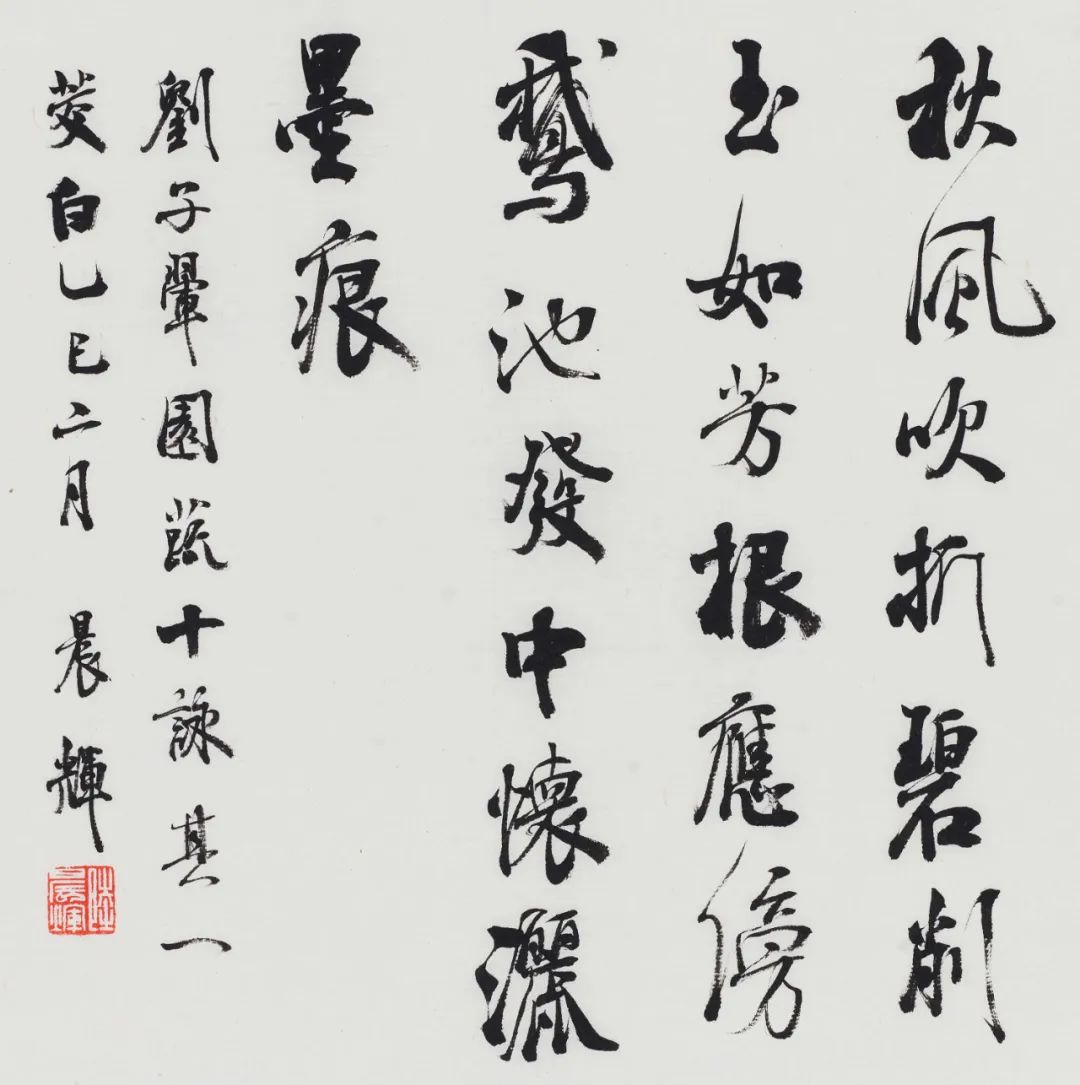 秋風吹折碧削
玉如芳根應傍
鵞池發中懷灑
墨痕
劉子翬園蔬十詠其一
茭白乙巳二月 晨輝
陸晨輝